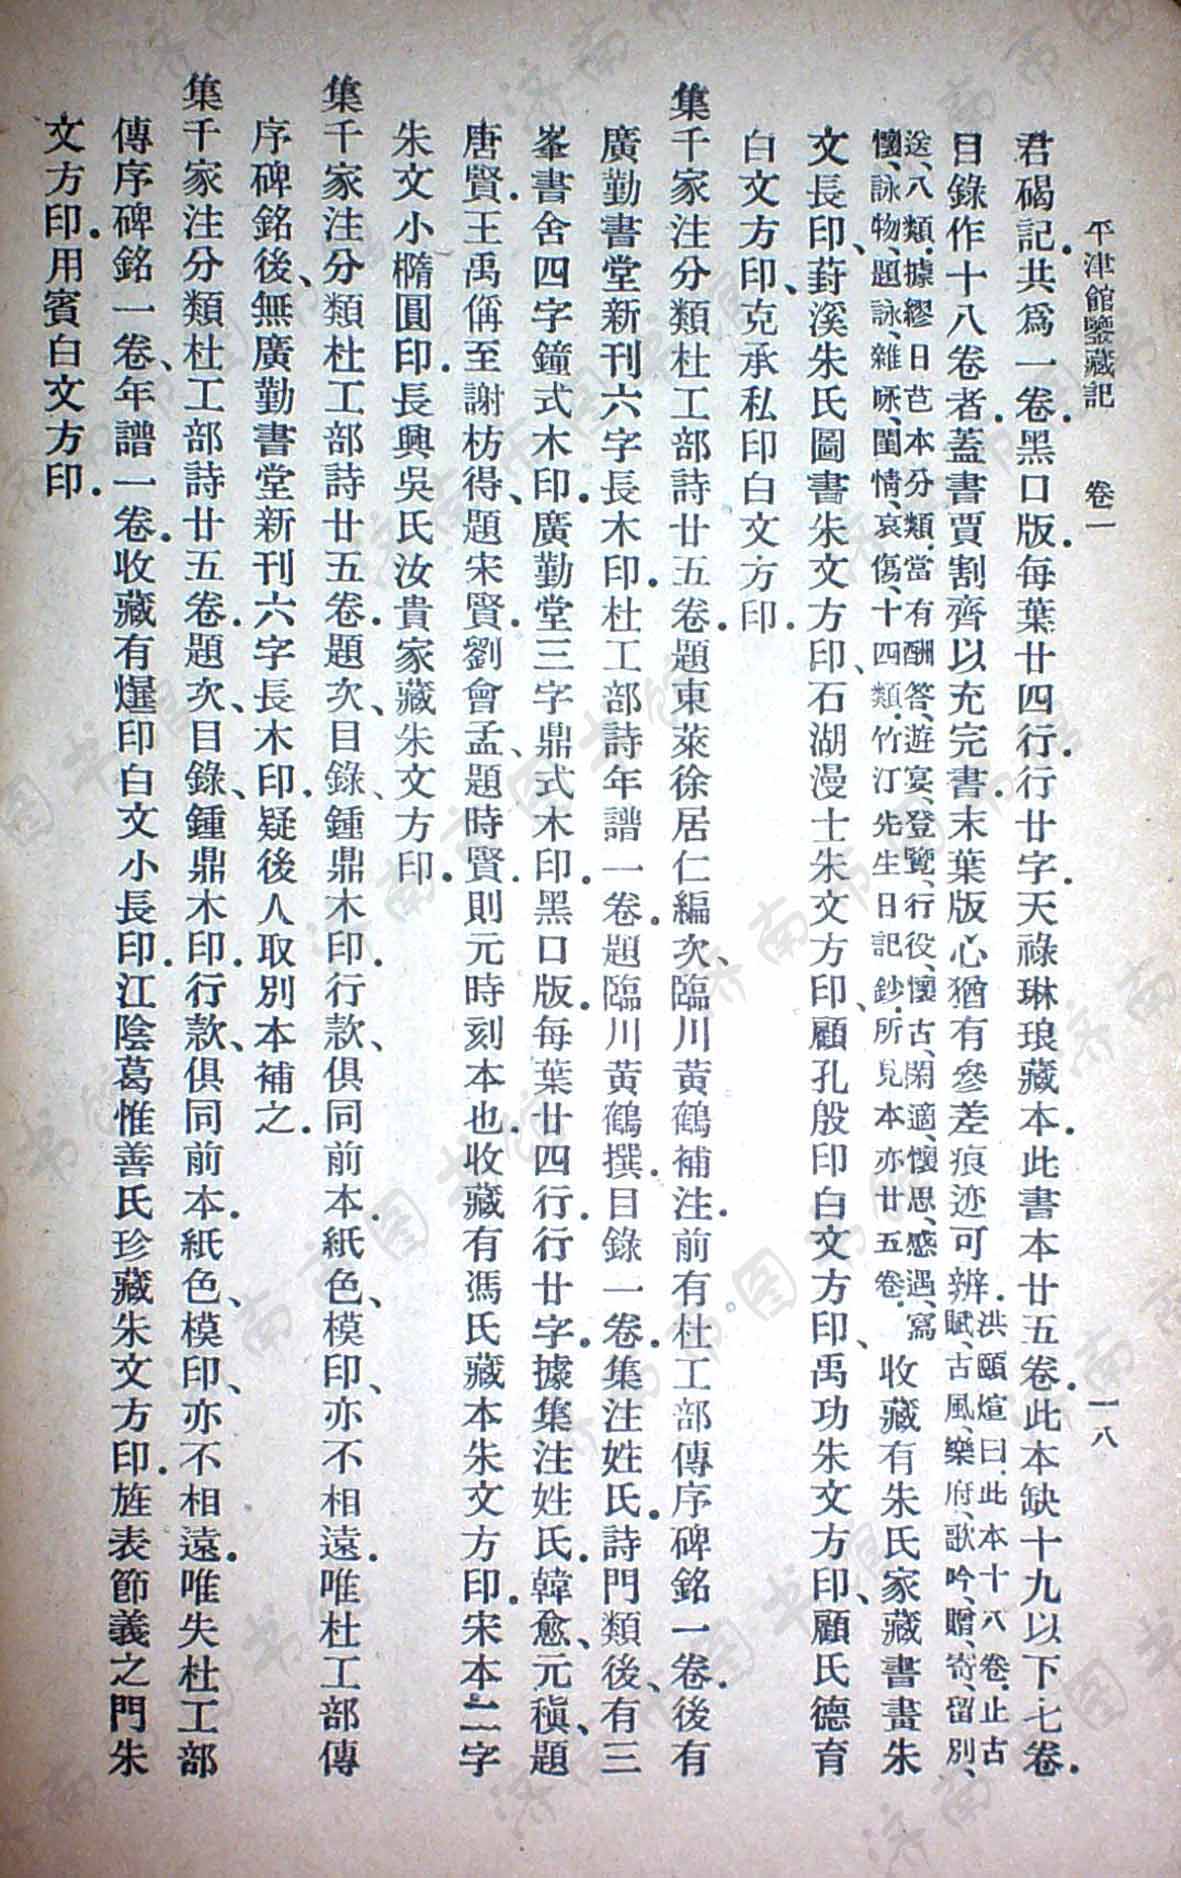 平津館鑒藏記　卷一　一八
君碣記.共爲一卷.黑口版.每葉廿四行.行廿字.天祿琳琅藏本.此書本廿五卷.此本缺十九以下七卷.
目錄作十八卷者.蓋書賈割齊以充完書.末葉版心猶有參差痕迹可辨.洪頤煊曰.此本十八卷.止古
賦、古風、樂府、歌吟、贈、寄、留別、
送、八類.據繆曰芑本分類.當有酬答、遊宴、登覽、行役、懷古、閑適、懷思、感遇、寫
懷、詠物、題詠、雜咏、閨情、哀傷、十四類.竹汀先生日記鈔.所見本亦廿五卷.收藏有朱氏家藏書畫朱
文長印、葑溪朱氏圖書朱文方印、石湖漫士朱文方印、顧孔殷印白文方印、禹功朱文方印、顧氏德育
白文方印、克承私印白文方印.
集千家注分類杜工部詩廿五卷.題東萊徐居仁編次、臨川黃鶴補注.前有杜工部傳序碑銘一卷.後有
廣勤書堂新刊六字長木印.杜工部詩年譜一卷.題臨川黃鶴撰.目錄一卷.集注姓氏.詩門類後、有三
峯書舍四字鐘式木印.廣勤堂三字鼎式木印.黑口版.每葉廿四行.行廿字.據集注姓氏.韓愈、元稹、題
唐賢.王禹偁至謝枋得、題宋賢.劉會孟、題時賢.則元時刻本也.收藏有馮氏藏本朱文方印.宋本二字
朱文小橢圓印.長興吳氏汝貴家藏朱文方印.
集千家注分類杜工部詩廿五卷.題次、目錄、鍾鼎木印.行款、俱同前本.紙色、模印、亦不相遠.唯杜工部傳
序碑銘後、無廣勤書堂新刊六字長木印.疑後人取別本補之.
集千家注分類杜工部詩廿五卷.題次、目錄、鍾鼎木印.行款、俱同前本.紙色、模印、亦不相遠.唯失杜工部
傳序碑銘一卷、年譜一卷.收藏有爗印白文小長印.江陰葛惟善氏珍藏朱文方印.旌表節義之門朱
文方印.用賓白文方印.